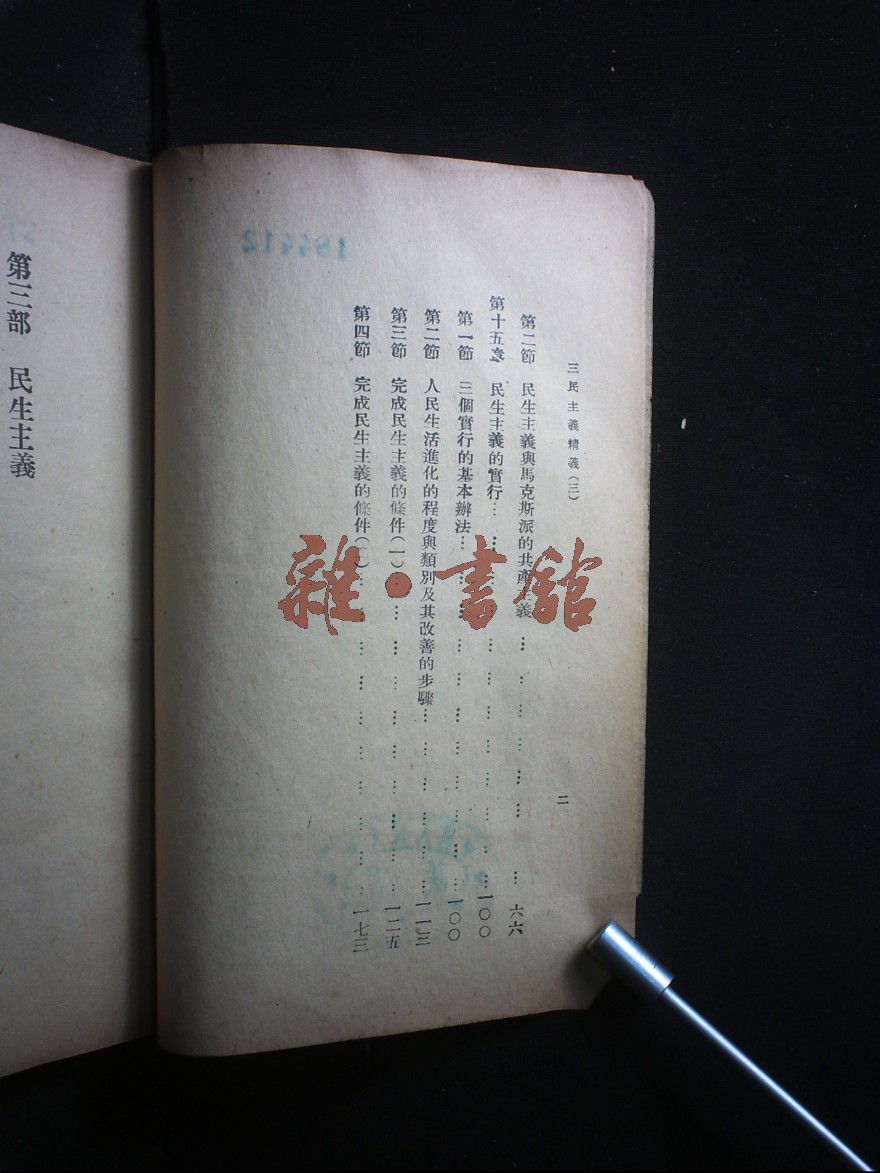 三民主義精義(三)
二
第二節 民生主義與馬克斯派的共產主義…………………六六
第十五章 民生主義的實行…………………一〇〇
第一節 三個實行的基本辦法…………………一〇〇
第二節 人民生活進化的程度與類別及其改善的步驟…………………一一三
第三節 完成民生主義的條件(一)…………………一二五
第四節 完成民生主義的條件(二)…………………一七三
第三部 民生主義
雜·書館
184412